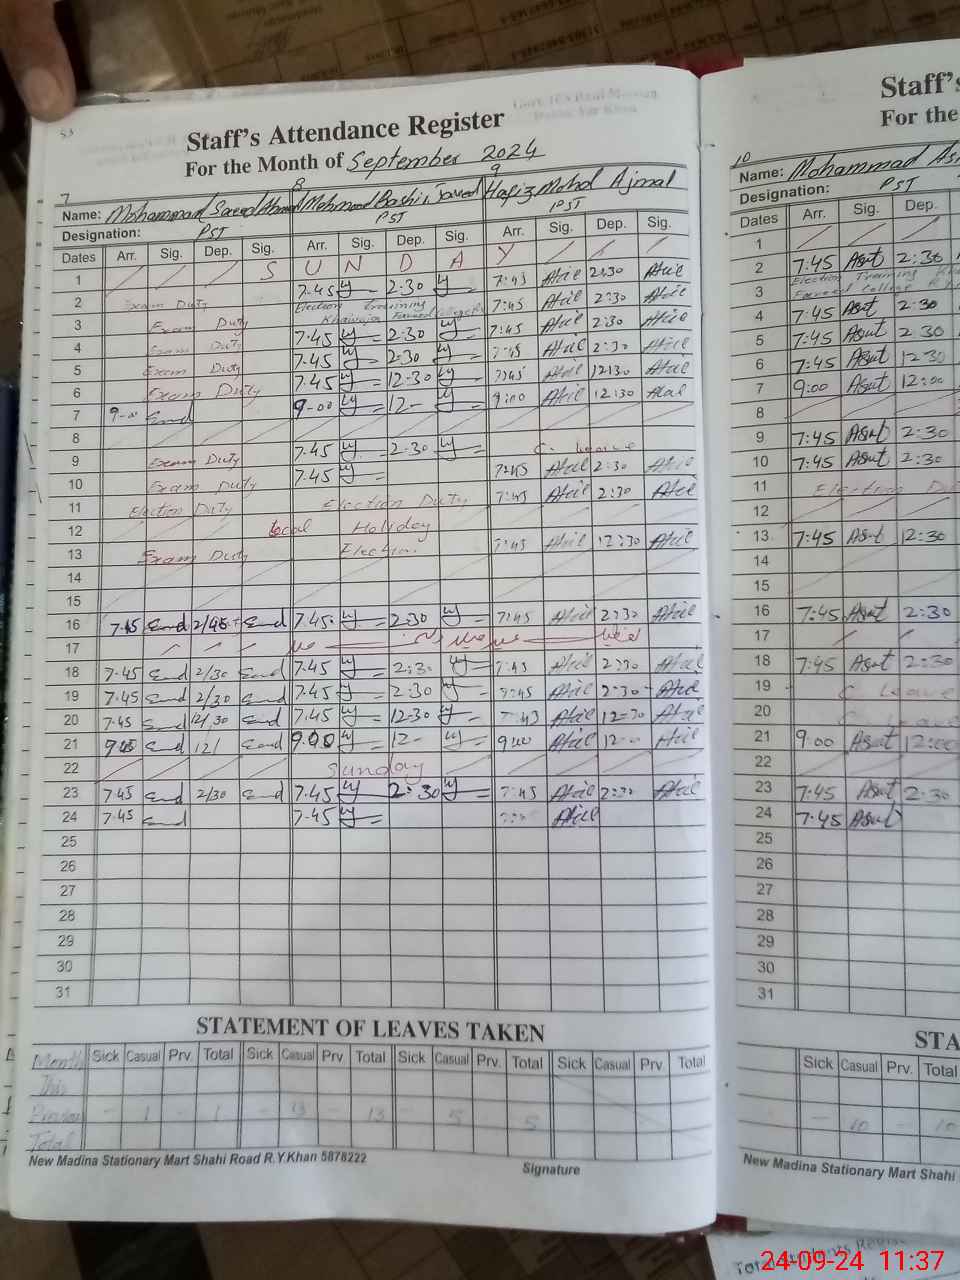 53
Staff's Attendance Register
For the Month of September 2024
7 8 9
Name: Mohammad Saeed Ahmad Mehmood Bashir Javed Hafiz Mohd Ajmal
Designation: PST PST PST
Dates Arr. Sig. Dep. Sig. Arr. Sig. Dep. Sig. Arr. Sig. Dep. Sig.
1 S U N D A Y
2 Exam Duty 7.45 2:30 7:45 2:30
3 Exam Duty Election Training Khawaja Fareed College 7:45 2:30
4 Exam Duty 7.45 2:30 7:45 2:30
5 Exam Duty 7.45 2:30 7:45 2:30
6 Exam Duty 7.45 12:30 7:45 12:30
7 9-00 9-00 12- 9:00 12:30
8
9 Exam Duty 7.45 2:30 C. leave
10 Exam Duty 7.45 7:45 2:30
11 Election Duty Election Duty 7:45 2:30
12 Local Holiday
13 Exam Duty Election 7:45 12:30
14
15
16 7.45 7.45 2:30 7:45 2:30
17
18 7.45 2/30 7.45 2:30 7:45 2:30
19 7.45 2/30 7.45 2:30 7:45 2:30
20 7.45 12/30 7.45 12-30 7:45 12-30
21 9.00 12/ 9.00 12- 9:00 12-
22 Sunday
23 7.45 2/30 7.45 2:30 7:45 2:30
24 7.45 7.45
25
26
27
28
29
30
31
STATEMENT OF LEAVES TAKEN
Month Sick Casual Prv. Total Sick Casual Prv. Total Sick Casual Prv. Total Sick Casual Prv. Total
This
Previous - 1 - 1 - 13 - 13 - 5 - 5
Total
New Madina Stationary Mart Shahi Road R.Y.Khan 5878222 Signature
Staff's
For the
10
Name: Mohammad
Designation: PST
Dates Arr. Sig. Dep.
1
2 7:45 2:30
3 Election Training Fareed College
4 7:45 2:30
5 7:45 2:30
6 7:45 12:30
7 9:00 12:00
8
9 7:45 2:30
10 7:45 2:30
11 Election
12
13 7:45 12:30
14
15
16 7:45 2:30
17
18 7:45 2:30
19 C Leave
20 C Leave
21 9:00 12:00
22
23 7:45 2:30
24 7:45
25
26
27
28
29
30
31
STA
Sick Casual Prv. Total
- 10 - 10
New Madina Stationary Mart Shahi
24-09-24 11:37